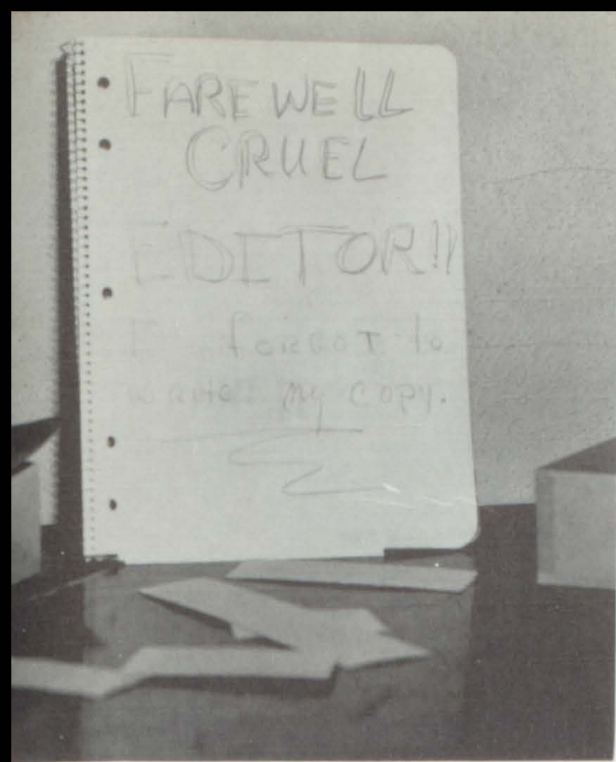 FAREWELL
CRUEL
EDITOR!!
I forgot to
write my copy.